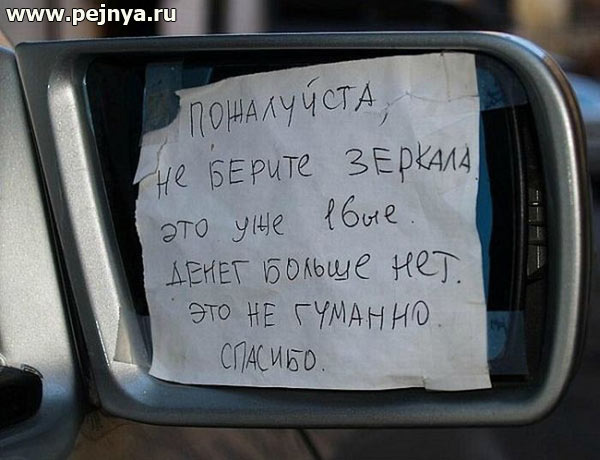 www.pejnya.ru
ПОЖАЛУЙСТА,
НЕ БЕРИТЕ ЗЕРКАЛА.
ЭТО УЖЕ 16ые.
ДЕНЕГ БОЛЬШЕ НЕТ.
ЭТО НЕ ГУМАННО.
СПАСИБО.